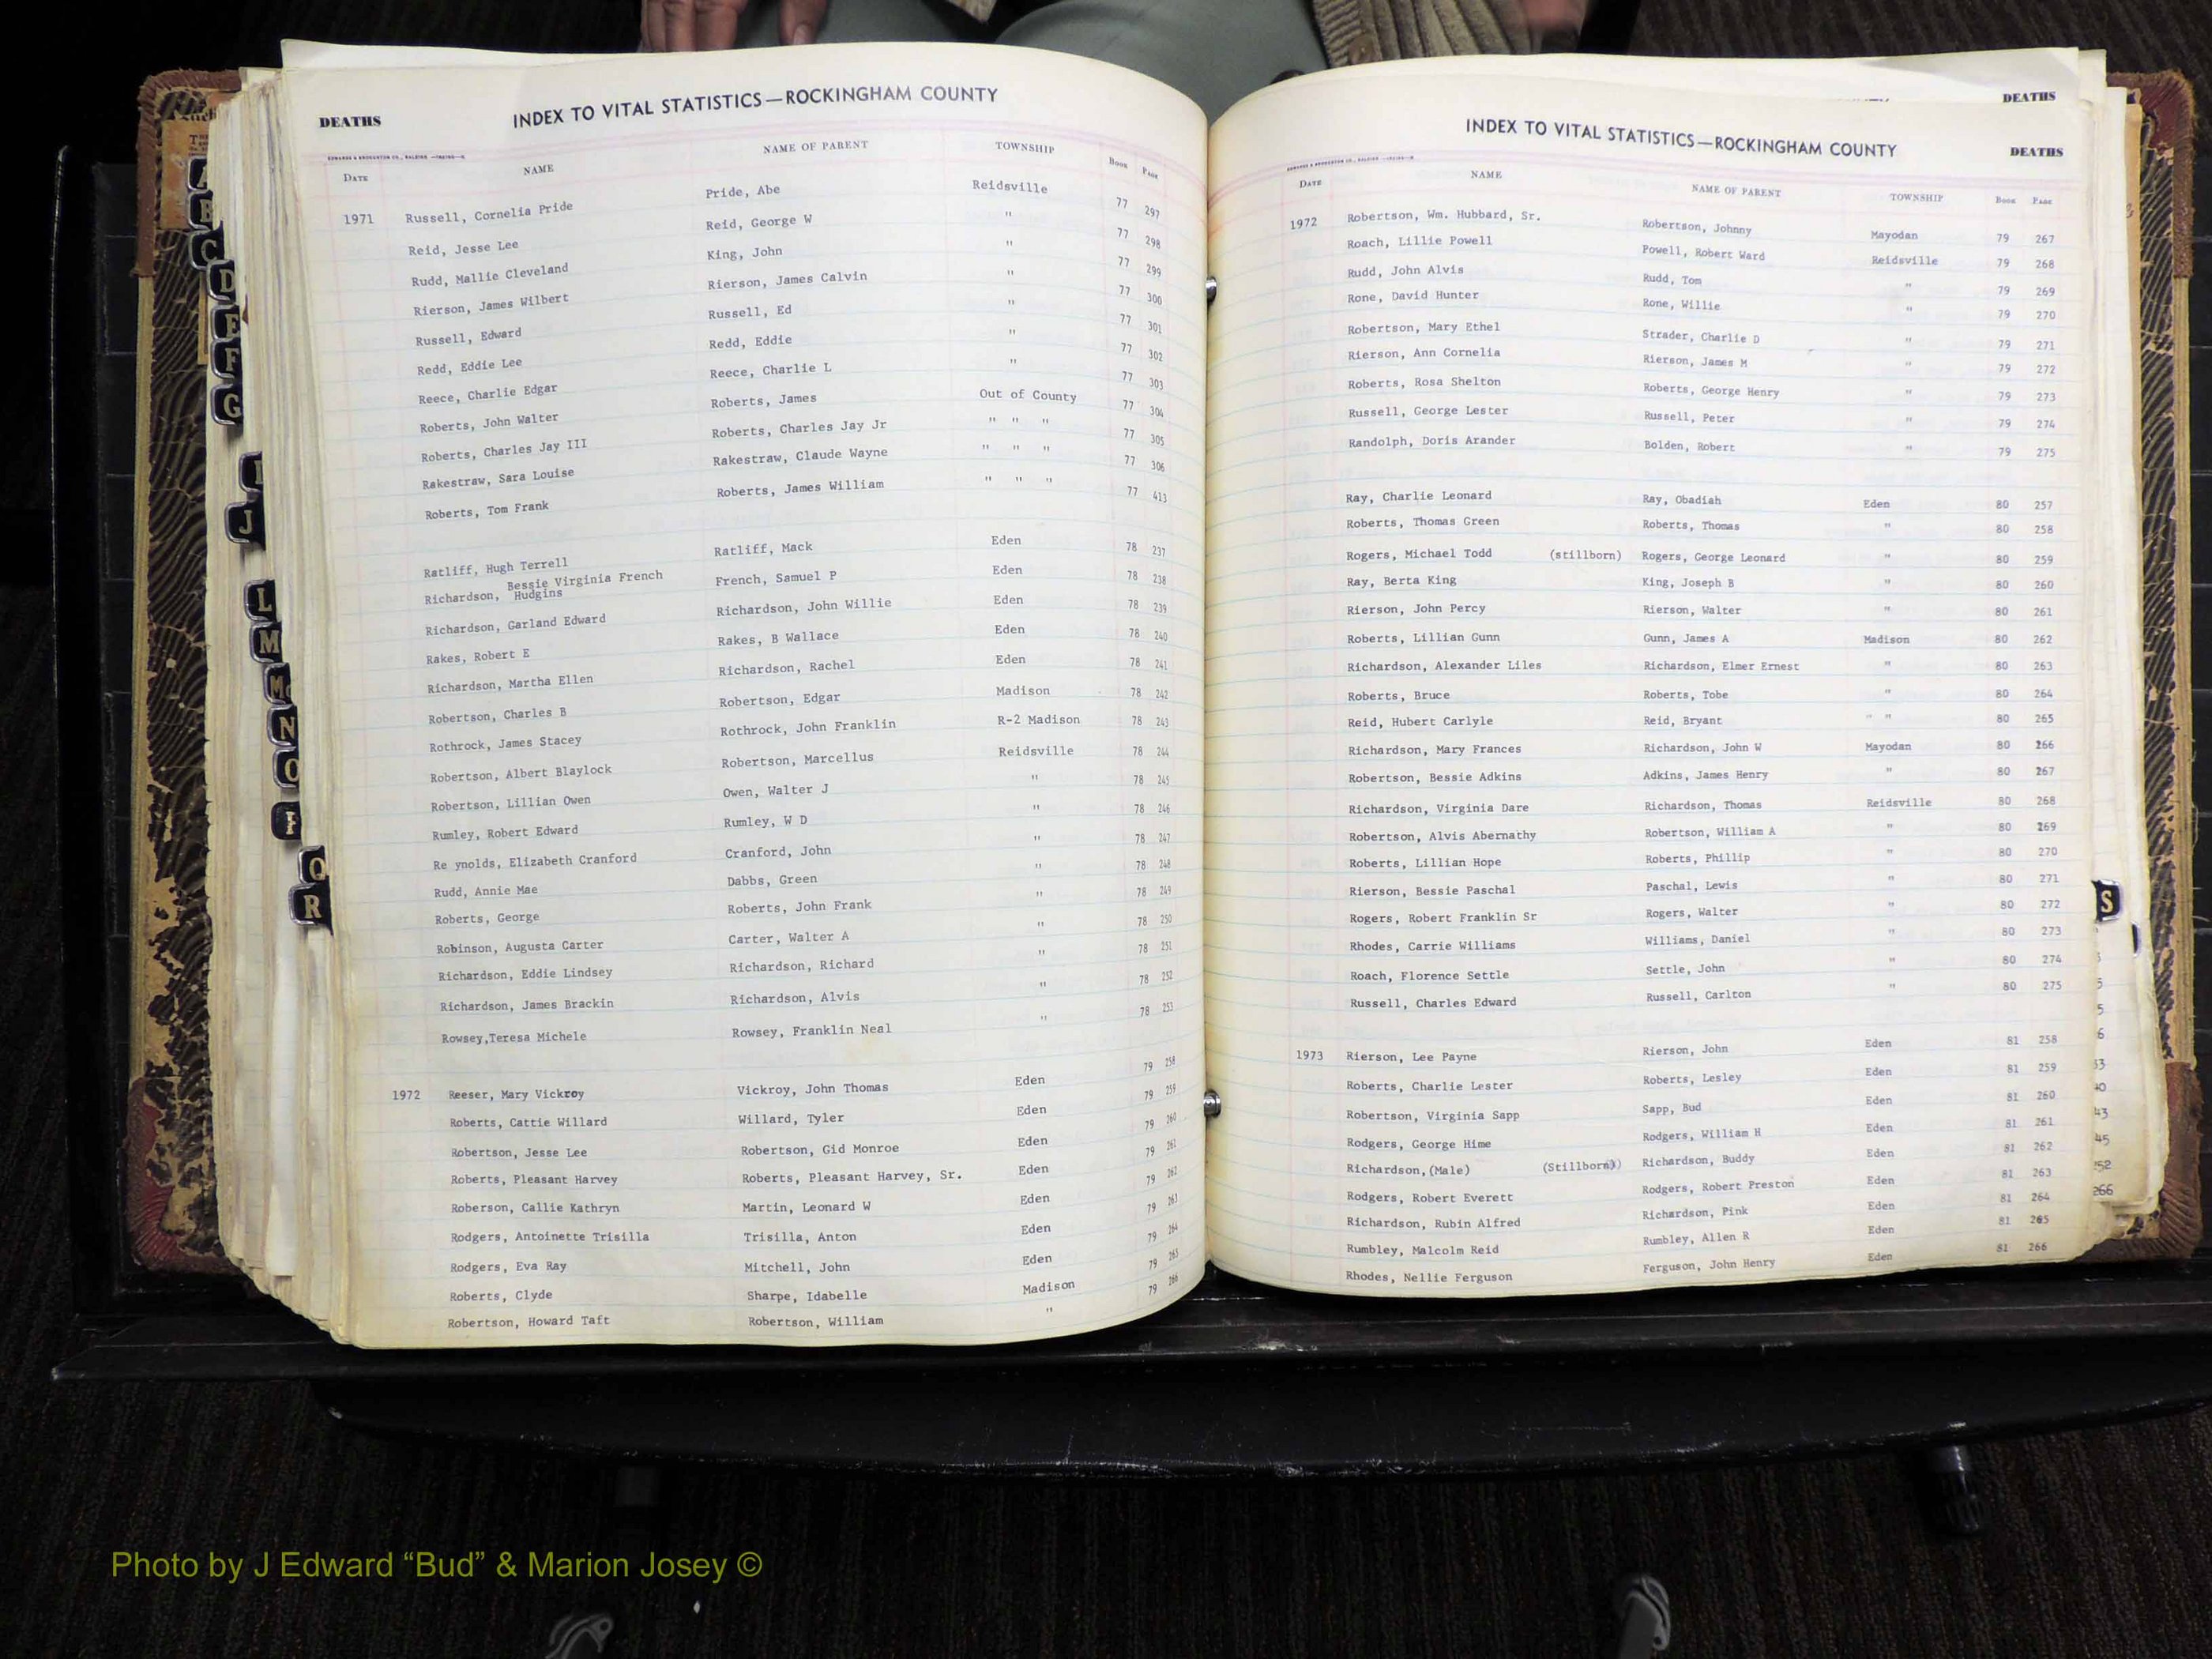 DEATHS
INDEX TO VITAL STATISTICS—ROCKINGHAM COUNTY
DATE NAME NAME OF PARENT TOWNSHIP BOOK PAGE
1971 Russell, Cornelia Pride Pride, Abe Reidsville 77 297
Reid, Jesse Lee Reid, George W " 77 298
Rudd, Mallie Cleveland King, John " 77 299
Rierson, James Wilbert Rierson, James Calvin " 77 300
Russell, Edward Russell, Ed " 77 301
Redd, Eddie Lee Redd, Eddie " 77 302
Reece, Charlie Edgar Reece, Charlie L " 77 303
Roberts, John Walter Roberts, James Out of County 77 304
Roberts, Charles Jay III Roberts, Charles Jay Jr " " " 77 305
Rakestraw, Sara Louise Rakestraw, Claude Wayne " " " 77 306
Roberts, Tom Frank Roberts, James William " " " 77 413
Ratliff, Hugh Terrell Ratliff, Mack Eden 78 237
Richardson, Bessie Virginia French Hudgins French, Samuel P Eden 78 238
Richardson, Garland Edward Richardson, John Willie Eden 78 239
Rakes, Robert E Rakes, B Wallace Eden 78 240
Richardson, Martha Ellen Richardson, Rachel Eden 78 241
Robertson, Charles B Robertson, Edgar Madison 78 242
Rothrock, James Stacey Rothrock, John Franklin R-2 Madison 78 243
Robertson, Albert Blaylock Robertson, Marcellus Reidsville 78 244
Robertson, Lillian Owen Owen, Walter J " 78 245
Rumley, Robert Edward Rumley, W D " 78 246
Re ynolds, Elizabeth Cranford Cranford, John " 78 247
Rudd, Annie Mae Dabbs, Green " 78 248
Roberts, George Roberts, John Frank " 78 249
Robinson, Augusta Carter Carter, Walter A " 78 250
Richardson, Eddie Lindsey Richardson, Richard " 78 251
Richardson, James Brackin Richardson, Alvis " 78 252
Rowsey,Teresa Michele Rowsey, Franklin Neal " 78 253
1972 Reeser, Mary Vickroy Vickroy, John Thomas Eden 79 258
Roberts, Cattie Willard Willard, Tyler Eden 79 259
Robertson, Jesse Lee Robertson, Gid Monroe Eden 79 260
Roberts, Pleasant Harvey Roberts, Pleasant Harvey, Sr. Eden 79 261
Roberson, Callie Kathryn Martin, Leonard W Eden 79 262
Rodgers, Antoinette Trisilla Trisilla, Anton Eden 79 263
Rodgers, Eva Ray Mitchell, John Eden 79 264
Roberts, Clyde Sharpe, Idabelle Madison 79 265
Robertson, Howard Taft Robertson, William " 79 266
DEATHS
INDEX TO VITAL STATISTICS—ROCKINGHAM COUNTY
DEATHS
DATE NAME NAME OF PARENT TOWNSHIP BOOK PAGE
1972 Robertson, Wm. Hubbard, Sr. Robertson, Johnny Mayodan 79 267
Roach, Lillie Powell Powell, Robert Ward Reidsville 79 268
Rudd, John Alvis Rudd, Tom " 79 269
Rone, David Hunter Rone, Willie " 79 270
Robertson, Mary Ethel Strader, Charlie D " 79 271
Rierson, Ann Cornelia Rierson, James M " 79 272
Roberts, Rosa Shelton Roberts, George Henry " 79 273
Russell, George Lester Russell, Peter " 79 274
Randolph, Doris Arander Bolden, Robert " 79 275
Ray, Charlie Leonard Ray, Obadiah Eden 80 257
Roberts, Thomas Green Roberts, Thomas " 80 258
Rogers, Michael Todd (stillborn) Rogers, George Leonard " 80 259
Ray, Berta King King, Joseph B " 80 260
Rierson, John Percy Rierson, Walter " 80 261
Roberts, Lillian Gunn Gunn, James A Madison 80 262
Richardson, Alexander Liles Richardson, Elmer Ernest " 80 263
Roberts, Bruce Roberts, Tobe " 80 264
Reid, Hubert Carlyle Reid, Bryant " " 80 265
Richardson, Mary Frances Richardson, John W Mayodan 80 266
Robertson, Bessie Adkins Adkins, James Henry " 80 267
Richardson, Virginia Dare Richardson, Thomas Reidsville 80 268
Robertson, Alvis Abernathy Robertson, William A " 80 269
Roberts, Lillian Hope Roberts, Phillip " 80 270
Rierson, Bessie Paschal Paschal, Lewis " 80 271
Rogers, Robert Franklin Sr Rogers, Walter " 80 272
Rhodes, Carrie Williams Williams, Daniel " 80 273
Roach, Florence Settle Settle, John " 80 274
Russell, Charles Edward Russell, Carlton " 80 275
1973 Rierson, Lee Payne Rierson, John Eden 81 258
Roberts, Charlie Lester Roberts, Lesley Eden 81 259
Robertson, Virginia Sapp Sapp, Bud Eden 81 260
Rodgers, George Hime Rodgers, William H Eden 81 261
Richardson,(Male) (Stillborn) Richardson, Buddy Eden 81 262
Rodgers, Robert Everett Rodgers, Robert Preston Eden 81 263
Richardson, Rubin Alfred Richardson, Pink Eden 81 264
Rumbley, Malcolm Reid Rumbley, Allen R Eden 81 265
Rhodes, Nellie Ferguson Ferguson, John Henry Eden 81 266
A
B
C
D
E
F
G
I
J
L
M
Mc
N
O
P
Q
R
S
Photo by J Edward “Bud” & Marion Josey ©